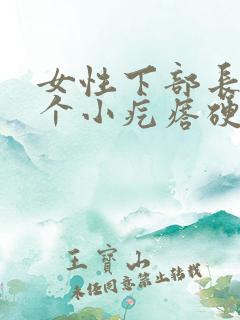 女性下部長
个小疙瘩硬
王寳山
未经同意禁止转载